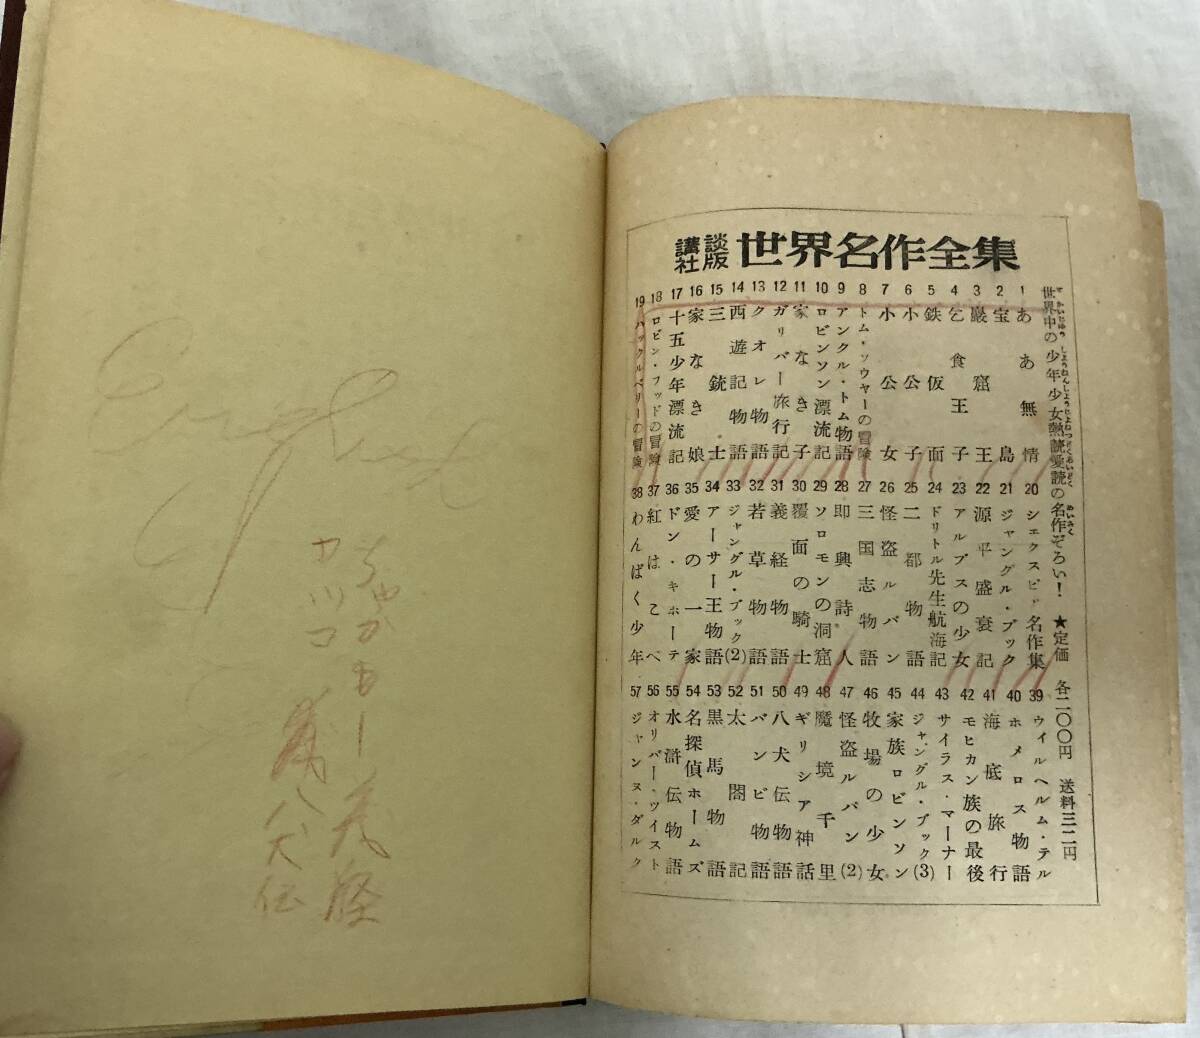 講談社版 世界名作全集
世界中の少年少女熱読愛読の名作ぞろい! ★定価 各二〇〇円 送料三二円
せかいじゅう しょうねんしょうじょねつどくあいどく めいさく
1 ああ無情
2 宝島
3 巌窟王
4 乞食王子
5 鉄仮面
6 小公子
7 小公女
8 トム・ソウヤーの冒険
9 アンクル・トム物語
10 ロビンソン漂流記
11 家なき子
12 ガリバー旅行記
13 クオレ物語
14 西遊記物語
15 三銃士
16 家なき娘
17 十五少年漂流記
18 ロビン・フッドの冒険
19 ハックルベリーの冒険
20 シェクスピア名作集
21 ジャングル・ブック
22 源平盛衰記
23 アルプスの少女
24 ドリトル先生航海記
25 二都物語
26 怪盗ルパン
27 三国志物語
28 即興詩人
29 ソロモンの洞窟
30 覆面の騎士
31 義経物語
32 若草物語
33 ジャングル・ブック(2)
34 アーサー王物語
35 愛の一家
36 ドン・キホーテ
37 紅はこべ
38 わんぱく少年
39 ウイルヘルム・テル
40 ホメロス物語
41 海底旅行
42 モヒカン族の最後
43 サイラス・マーナー
44 ジャングル・ブック(3)
45 家族ロビンソン
46 牧場の少女
47 怪盗ルパン(2)
48 魔境千里
49 ギリシア神話
50 八犬伝物語
51 バンビ物語
52 太閤記
53 黒馬物語
54 名探偵ホームズ
55 水滸伝物語
56 オリバー・ツイスト
57 ジャンヌ・ダルク
カツコ
八犬伝